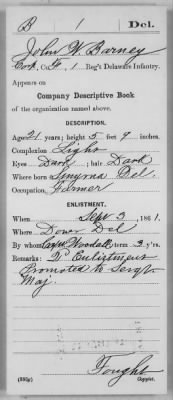 B 1 Del.
John W. Barney
Corp, Co. F, 1 Reg't Delaware Infantry.
Appears on
Company Descriptive Book
of the organization named above.
DESCRIPTION.
Age 21 years; height 5 feet 9 inches.
Complexion Light
Eyes Dark; hair Dark
Where born Smyrna Del.
Occupation, Farmer
ENLISTMENT.
When Sept 3, 1861.
Where Dover Del
By whom Capt Woodall term 3 y'rs.
Remarks: 2d Enlistment
Promoted to Sergt
Maj.
Fought
(383g) Copyist.